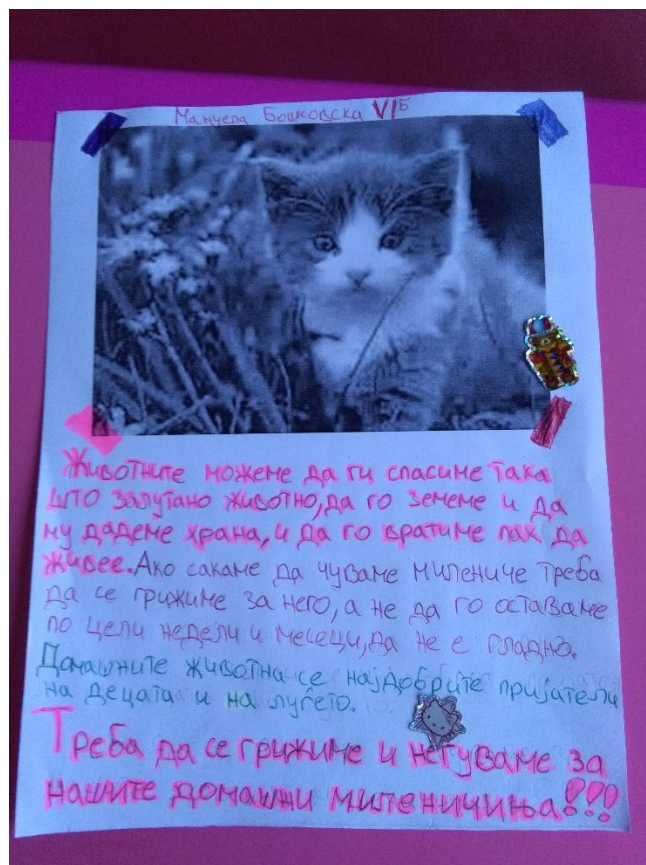 Мануела Бошковска VIб
Животните можеме да ги спасиме така
што залутано животно, да го земеме и да
му дадеме храна, и да го вратиме пак да
живее. Ако сакаме да чуваме милениче треба
да се грижиме за него, а не да го оставаме
по цели недели и месеци, да не е гладно.
Домашните животна се најдобрите пријатели
на децата и на луѓето.
Треба да се грижиме и негуваме за
нашите домашни миленичиња!!!